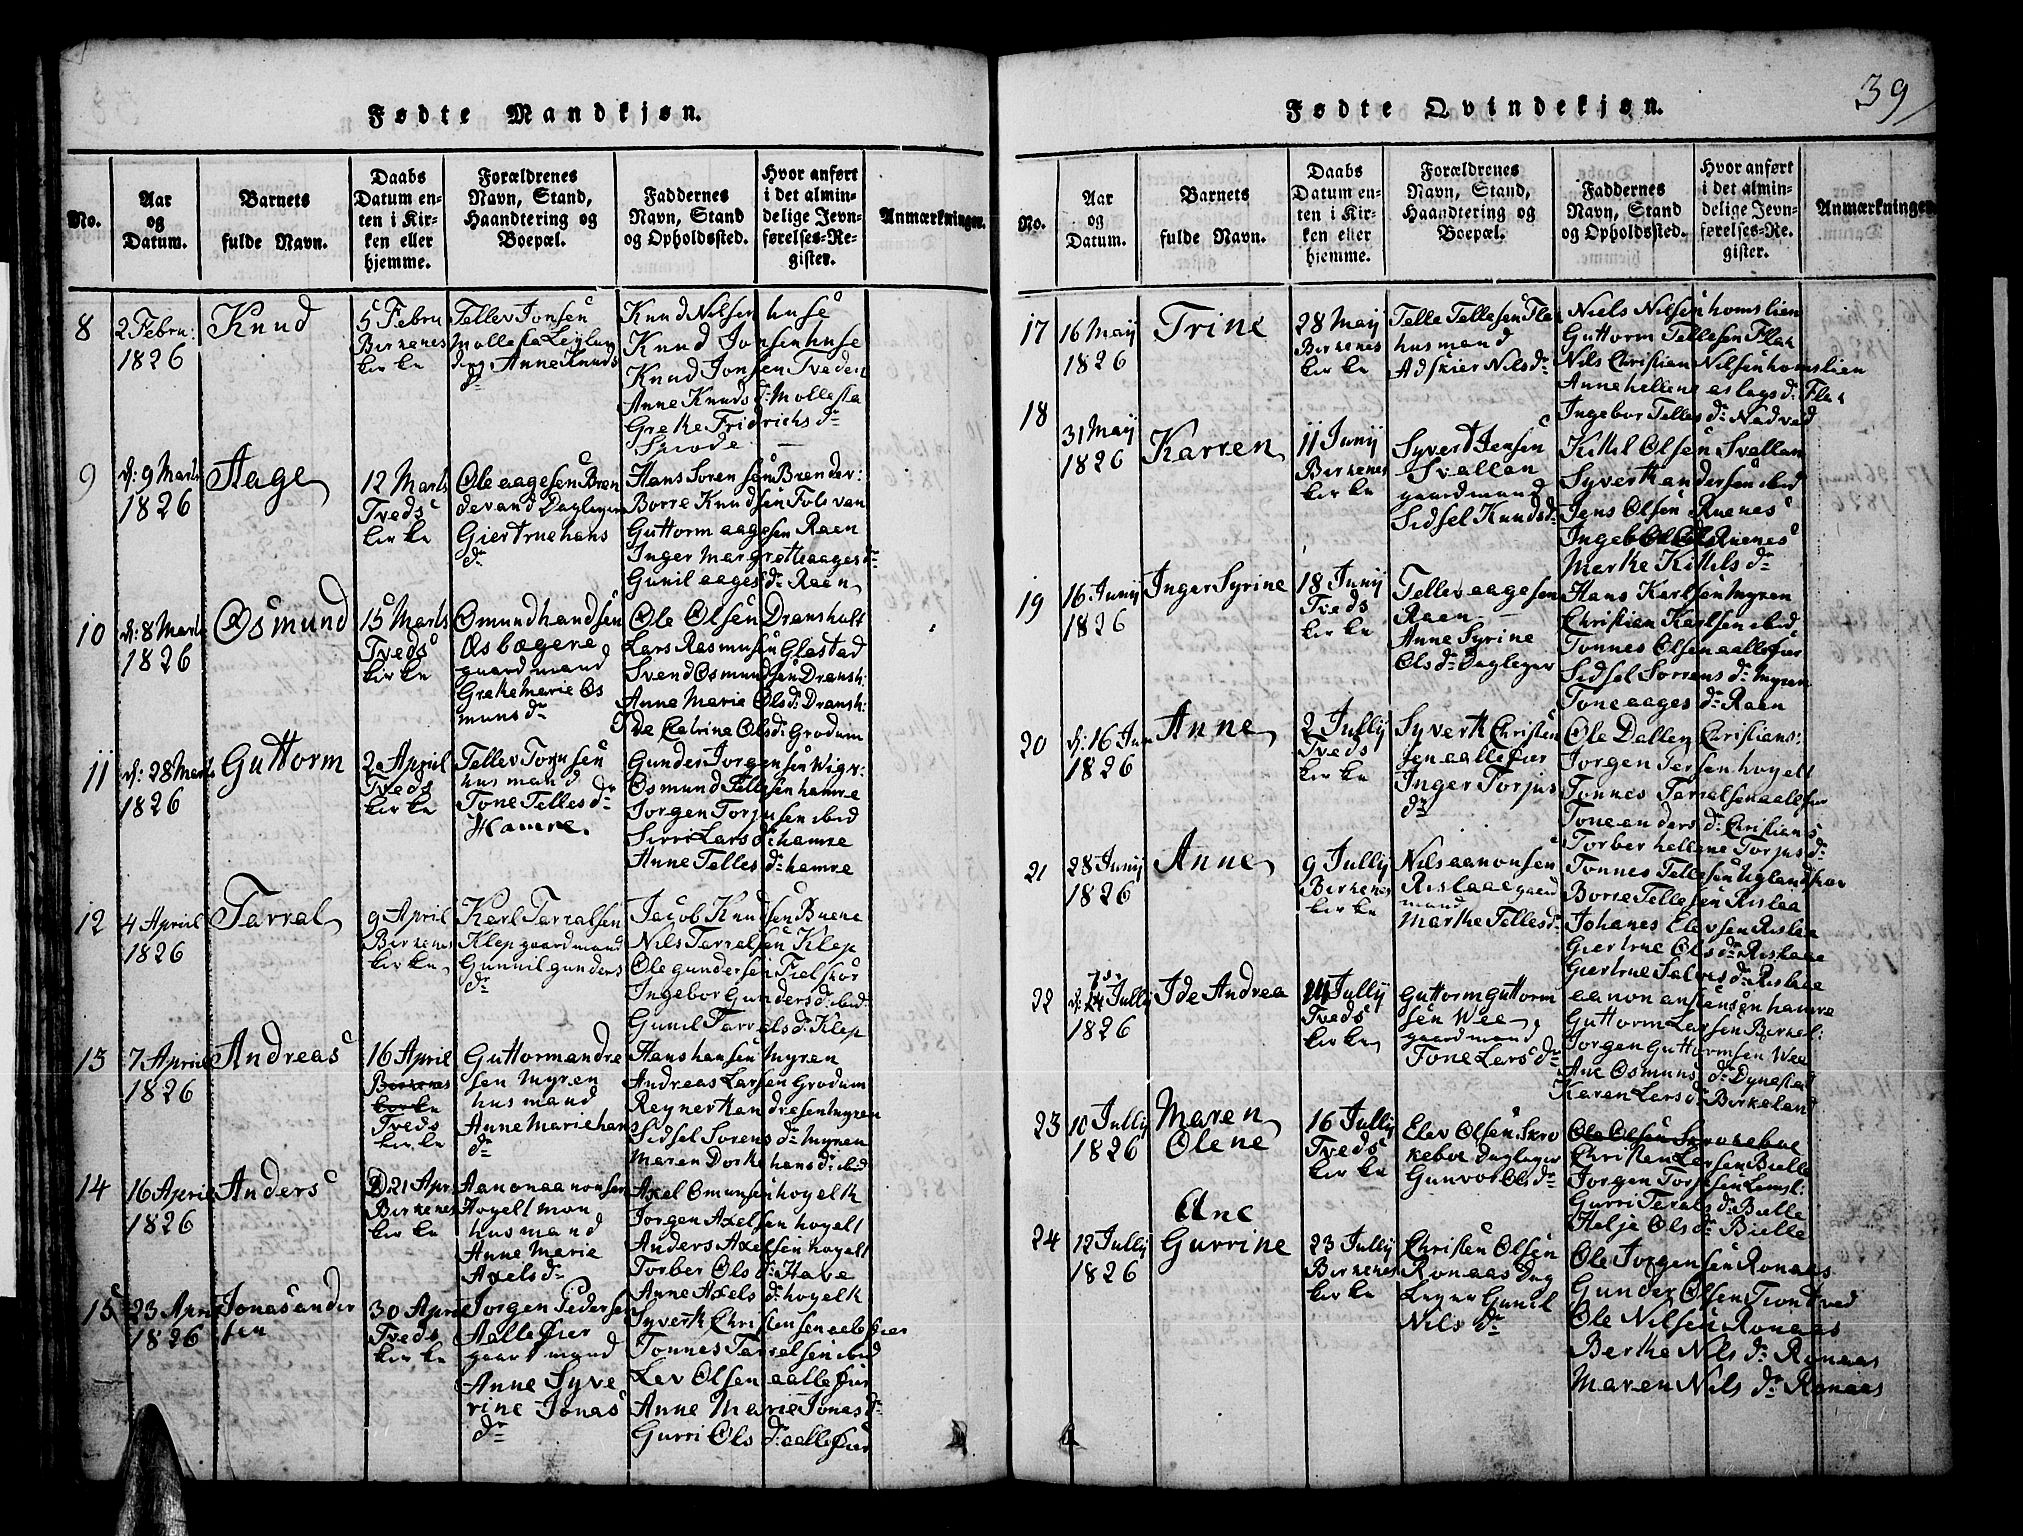 Fødte Mandkjøn.
No.
Aar
og
Datum.
Barnets
fulde Navn.
Daabs
Datum en-
ten i Kir-
ken eller
hjemme.
Forældrenes
Navn, Stand,
Haandtering og
Boepæl.
Faddernes
Navn, Stand
og Opholdssted.
Hvor anført
i det almin-
delige Jevn-
førelses-Re-
gister.
Anmærkninger.
8
2 Febru:
1826
Knud
5 Febru
Birkenes
kirke
Tellev Jonsen
Mollesta
Anne Knuds
dr
Knud Nilsen huse
Knud Jonsen huse
Knud Jonsen Tveden
Anne Knuds dr Mollesta
Grethe Fridrichs dr
9
d: 9 Marts
1826
Aage
12 Marts
Tveds
kirke
Ole aagesen Bren
devand Dagleyer
Giertrue hans
dr
Hans Sorensen Brender:
Borre Knudsen Tolsvan
Guttorm aagesen Raen
Inger Margrethe aages dr
Gunil aages dr Raen
10
d: 8 Marts
1826
Osmund
15 Marts
Tveds
kirke
Omund handsen
Osbægene
gaard mand
Grethe Marie Os
muns dr
Ole Olsen Dransholt
Lars Rasmusen Glastad
Svend Osmundsen Dransh:
Anne Marie Ols dr Dransh:
Ide Catrine Ols dr Grodum
11
d: 28 Marts
1826
Guttorm
2 April
Tveds
kirke
Tellev Torjusen
hus mand
Tone Telles dr
Hamre.
Gunder Jorgensen Wigr:
Osmund Tellesen hamre
Jorgen Torjusen ibid
Sirri Lars dr hamre
Anne Telles dr hamre
12
4 April
1826
Tarral
9 April
Birkenes
kirke
Karl Tarralsen
Klep gaard mand
Gunnil gunders
dr
Jacob Knudsen Buene
Nils Tarralsen Klep
Ole gundersen Fielskor
Ingebor Gunders dr ibid
Gunil Tarrels dr Klep
13
7 April
1826
Andreas
16 April
Birkenes
kirke
Tveds
kirke
Guttorm andre
sen Myren
hus mand
Anne Marie hans
dr
Hans hansen Myren
Andreas Larsen Grodum
Reynert andresen Myren
Sidsel Sorens dr Myren
Maren Dorthe hans dr ibid
14
16 April
1826
Anders
D: 21 Apr
Birkenes
kirke
Aanon aanonsen
Hoyelt mon
hus mand
Anne Marie
Axels dr
Axel Omunsen hoyelt
Jorgen Axelsen hoyelt
Anders Axelsen hoyelt
Torber Ols dr Have
Anne Axels dr hoyelt
15
23 Apri
1826
Jonas ander
sen
30 April
Tveds
kirke
Jorgen Pedersen
Aallefier
gaard mand
Anne Syve
rine Jonas
dr
Syvert Christensen aalefier
Tonnes Tarrelsen ibid
Lev Olsen aallefier
Anne Marie Jonas dr
Gurri Ols dr aallefier
Fødte Qvindekjøn.
39
No.
Aar
og
Datum.
Barnets
fulde Navn.
Daabs
Datum en-
ten i Kir-
ken eller
hjemme.
Forældrenes
Navn, Stand,
Haandtering og
Boepæl.
Faddernes
Navn, Stand
og Opholdssted.
Hvor anført
i det almin-
delige Jevn-
førelses-Re-
gister.
Anmærkninger.
17
16 Maij
1826
Trine
28 Maij
Birkenes
kirke
Telle Tellesen Flak
husmand
Adskier Nils dr
Niels Nilsen homslien
Guttorm Tellesen Flak
Nils Christien Nilsen homslien
Anne hellene aslags dr Flak
Ingebor Telles dr Nødved
18
31 Maij
1826
Karren
11 Junij
Birkenes
kirke
Syvert Jensen
Svallan
gaard mand
Sidsel Knuds dr
Kittil Olsen Svallan
Syvert andersen ibid
Jens Olsen Ruenes
Marthe Kittils dr
19
16 Junij
1826
Inger Syrine
18 Junij
Tveds
kirke
Tellev aagesen
Raen
Anne Syrine
Ols dr Dagleyer
Hans Karlsen Myren
Christien Karlsen ibid
Tonnes Olsen aallefier
Sidsel Sorrens dr Myren
Tone aages dr Raen
20
d: 16 Jun
1826
Anne
2 Jullij
Tveds
kirke
Syvert Christen
sen aallefier
Inger Torjus
dr
Ole Dalley Christians:
Jorgen Tersen hoyelt
Tonnes Tarralsen aalefier
Tone anders dr Christians
Torber hellene Torjus dr
21
28 Junij
1826
Anne
9 Jullij
Birkenes
kirke
Nils aanonsen
Rislaae gaard
mand
Marthe Telles dr
Tonnes Tellesen Uglandskar
Borre Tellesen Rislaa
Johanes Elevsen Rislaa
Giertrue Ols dr Rislaae
Giertrue Salves dr Rislaae
22
d: Jullij
1826
Ide Andrea
Jullij
Tveds
kirke
Guttorm Guttorm
sen Wee
gaard mand
Tone Lers dr
aanon anstensøn hamre
Guttorm Larsen Birkel:
Jorgen Guttormsen Wee
Ane Osmuns dr Dynestad
Karen Lars dr Birkeland
23
10 Jullij
1826
Maren
Olene
16 Jullij
Tveds
kirke
Elev Olsen Skro
keboe Dagleyer
Gunvor Ols dr
Ole Olsen Skrokeboe
Christen Larsen Bielle
Jorgen Torjusen Lemsl:
Gurri Terals dr Bielle
Helje Ols dr Bielle
24
12 Jullij
1826
Ane
Gurrine
23 Jullij
Birkenes
kirke
Christen Olsen
Ronaas Dag
Leyer Gunil
Nils dr
Ole Jorgensen Ronaas
Gunder Olsen Tiontved
Ole Nilsen Ronaas
Berthe Nils dr Ronaas
Maren Nils dr Ronaas